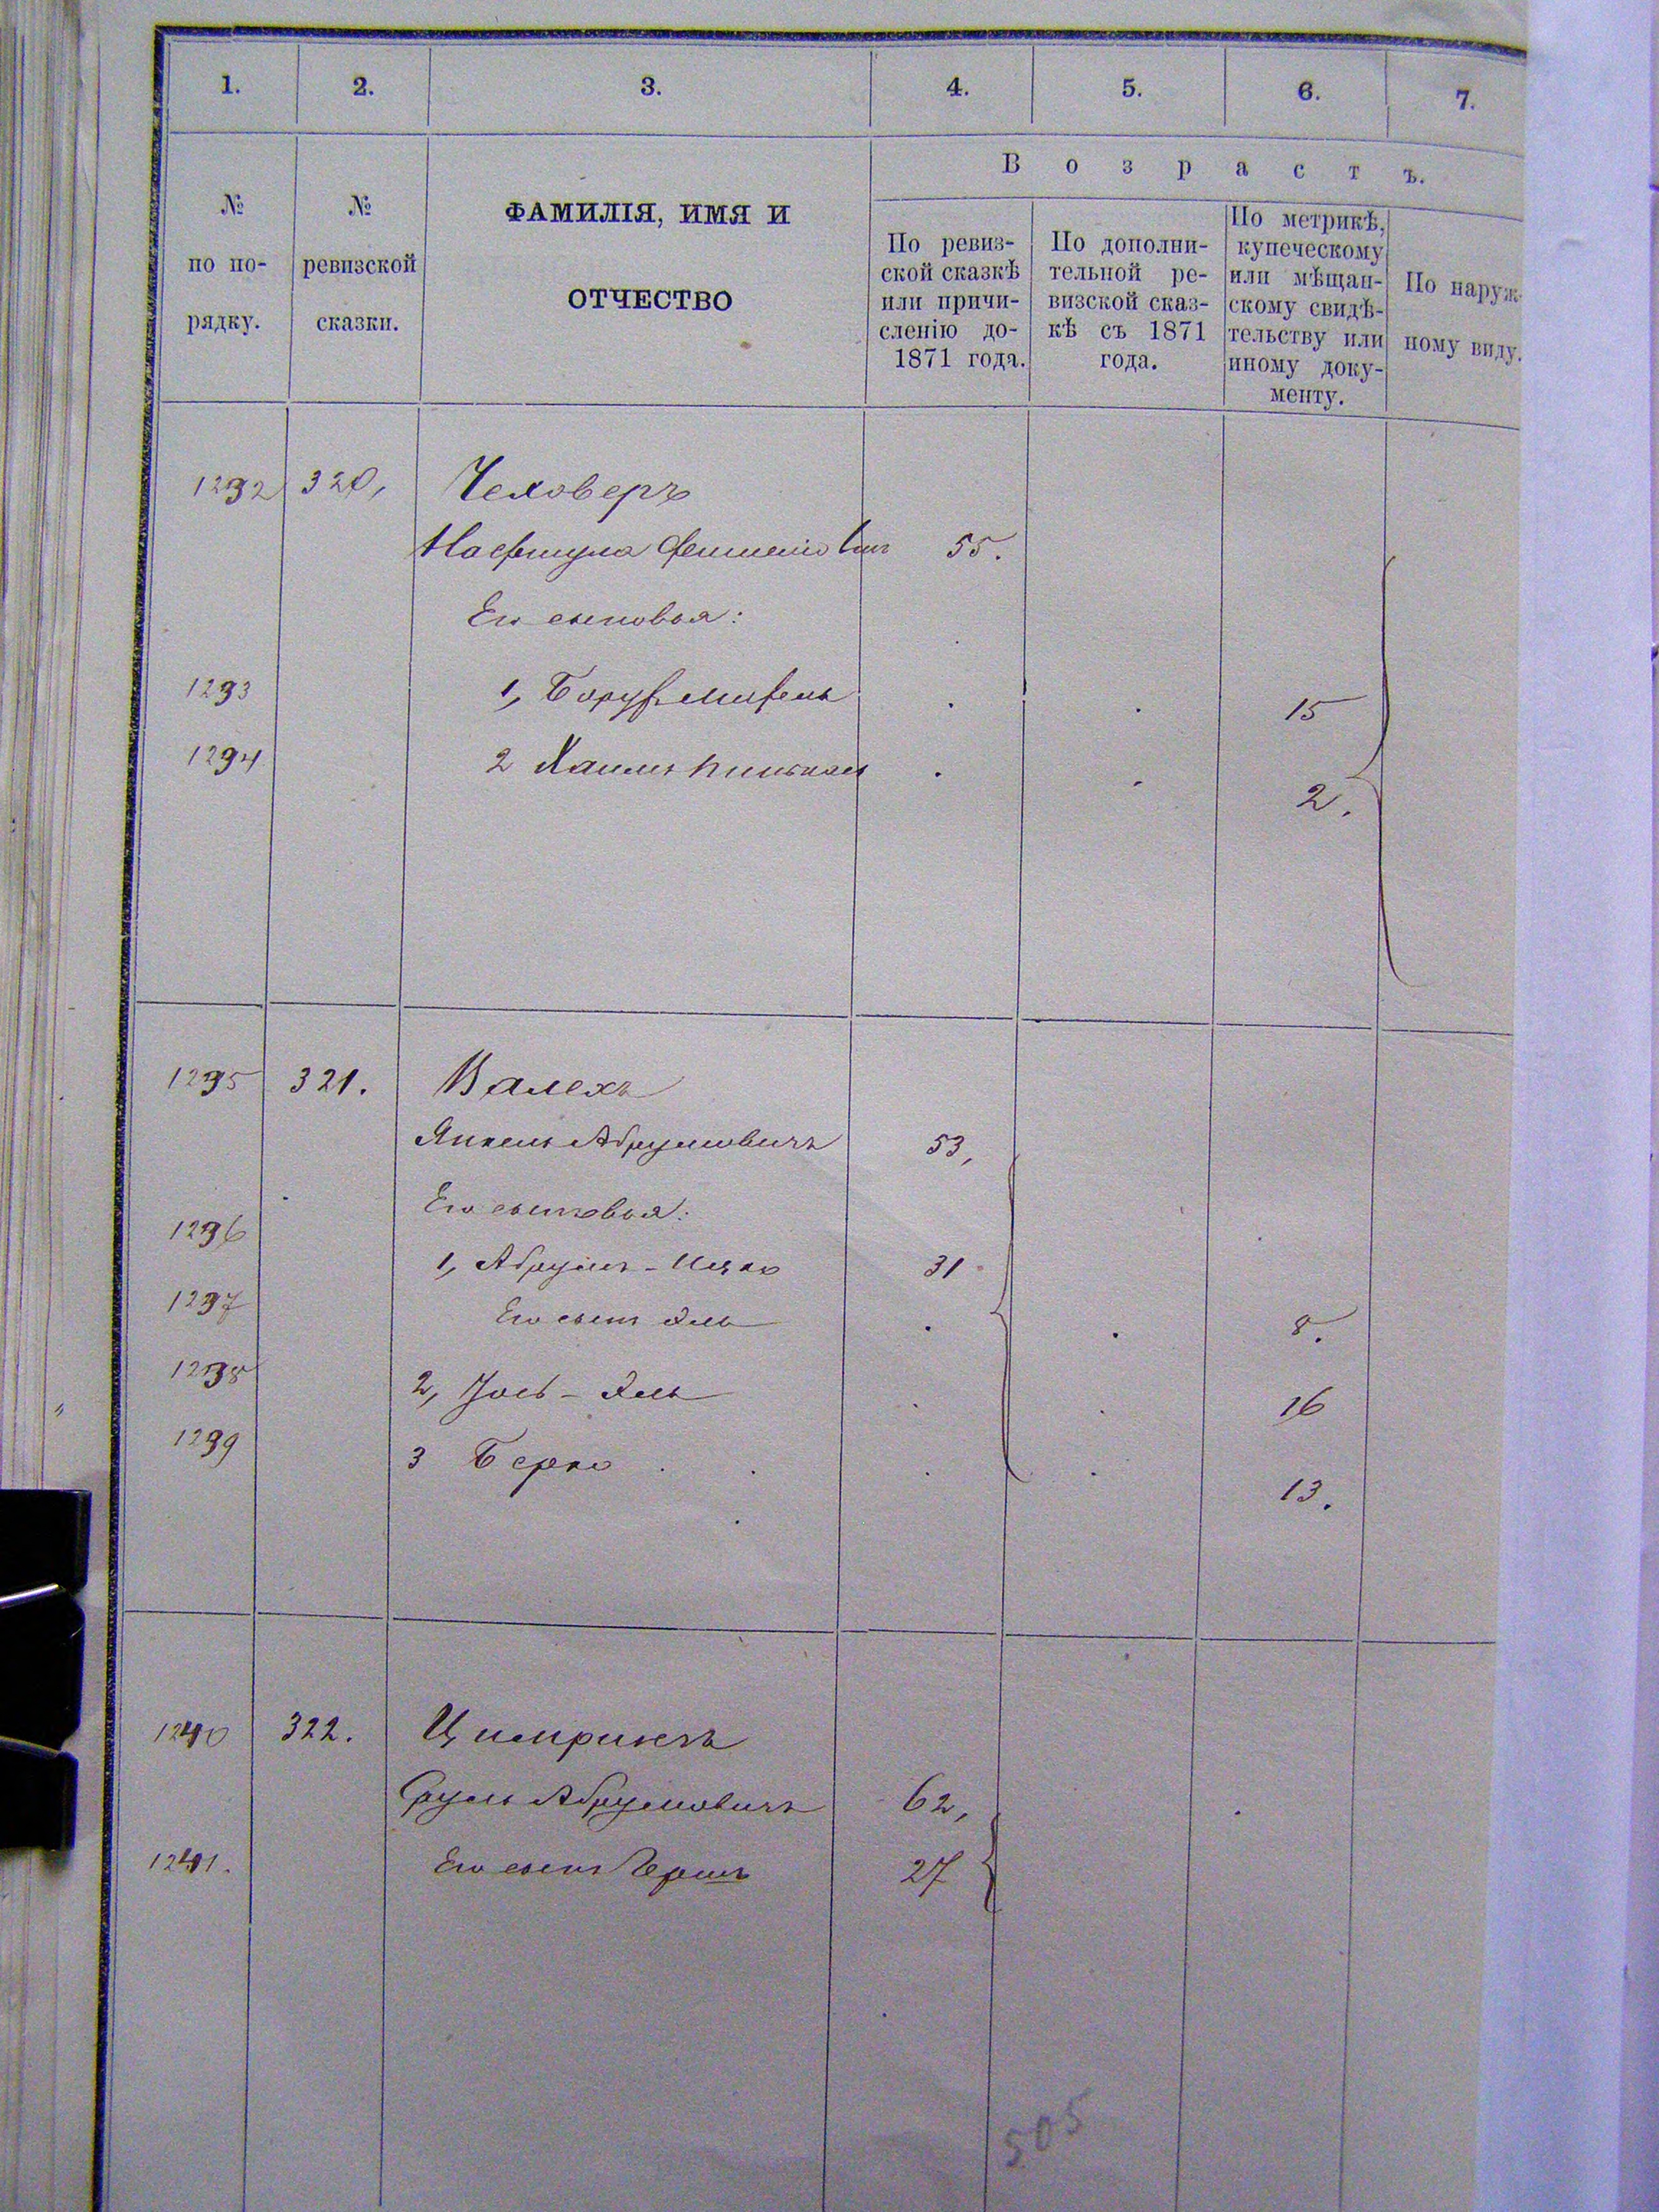 1. 2. 3. 4. 5. 6. 7.
№ по порядку.
№ ревизской сказки.
ФАМИЛІЯ, ИМЯ И
ОТЧЕСТВО
Возрастъ.
По ревиз-
ской сказкѣ
или причи-
сленію до-
1871 года.
По дополни-
тельной ре-
визской сказ-
кѣ съ 1871
года.
По метрикѣ,
купеческому
или мѣщан-
скому свидѣ-
тельству или
иному доку-
менту.
По наруж-
ному виду.
1232 320, Чеховеръ
Нафтула 55.
Его сыновья:
1293 1, Борух 15
1294 2 Хаимъ Пинькас 2.
1295 321. Валехъ
Янкель Абрумовичъ 53,
Его сыновья:
1296 1, Абрумъ - Ицко 31
1297 Его сынъ Эль 8.
1298 2, Іось - Эль 16
1299 3 Берко 13.
1240 322. Цимрингъ
Сруль Абрумовичъ 62,
1241. Его сынъ Гершъ 27
505